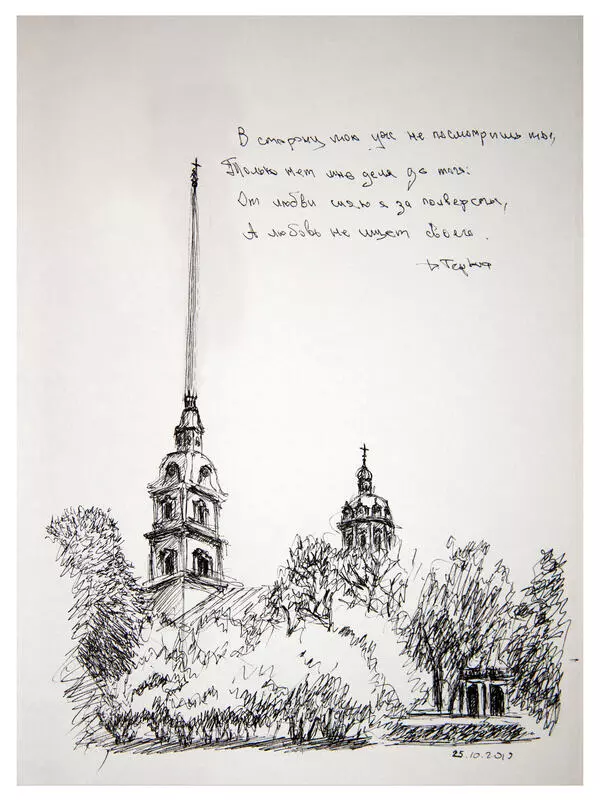 В сторону мою уже не посмотришь ты,
Только нет мне дела до того:
От любви стою я за полверсты,
А любовь не ищет своего.
25.10.2019